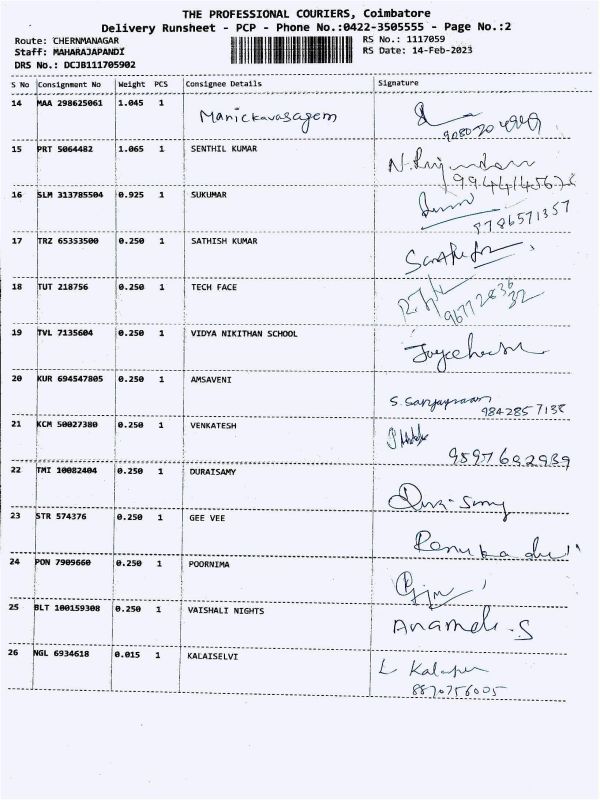 THE PROFESSIONAL COURIERS, Coimbatore
Delivery Runsheet - PCP - Phone No.:0422-3505555 - Page No.:2
Route: CHERNMANAGAR RS No.: 1117059
Staff: MAHARAJAPANDI RS Date: 14-Feb-2023
DRS No.: DCJB111705902
S No Consignment No Weight PCS Consignee Details Signature
14 MAA 298625061 1.045 1 Manickavasagem
15 PRT 5064482 1.065 1 SENTHIL KUMAR
16 SLM 313785504 0.925 1 SUKUMAR
8786571357
17 TRZ 65353500 0.250 1 SATHISH KUMAR
18 TUT 218756 0.250 1 TECH FACE
19 TVL 7135604 0.250 1 VIDYA NIKITHAN SCHOOL
20 KUR 694547805 0.250 1 AMSAVENI
9842857138
21 KCM 50027380 0.250 1 VENKATESH
9597602939
22 TMI 10082404 0.250 1 DURAISAMY
23 STR 574376 0.250 1 GEE VEE
24 PON 7909660 0.250 1 POORNIMA
25 BLT 100159308 0.250 1 VAISHALI NIGHTS
26 NGL 6934618 0.015 1 KALAISELVI
8870756005